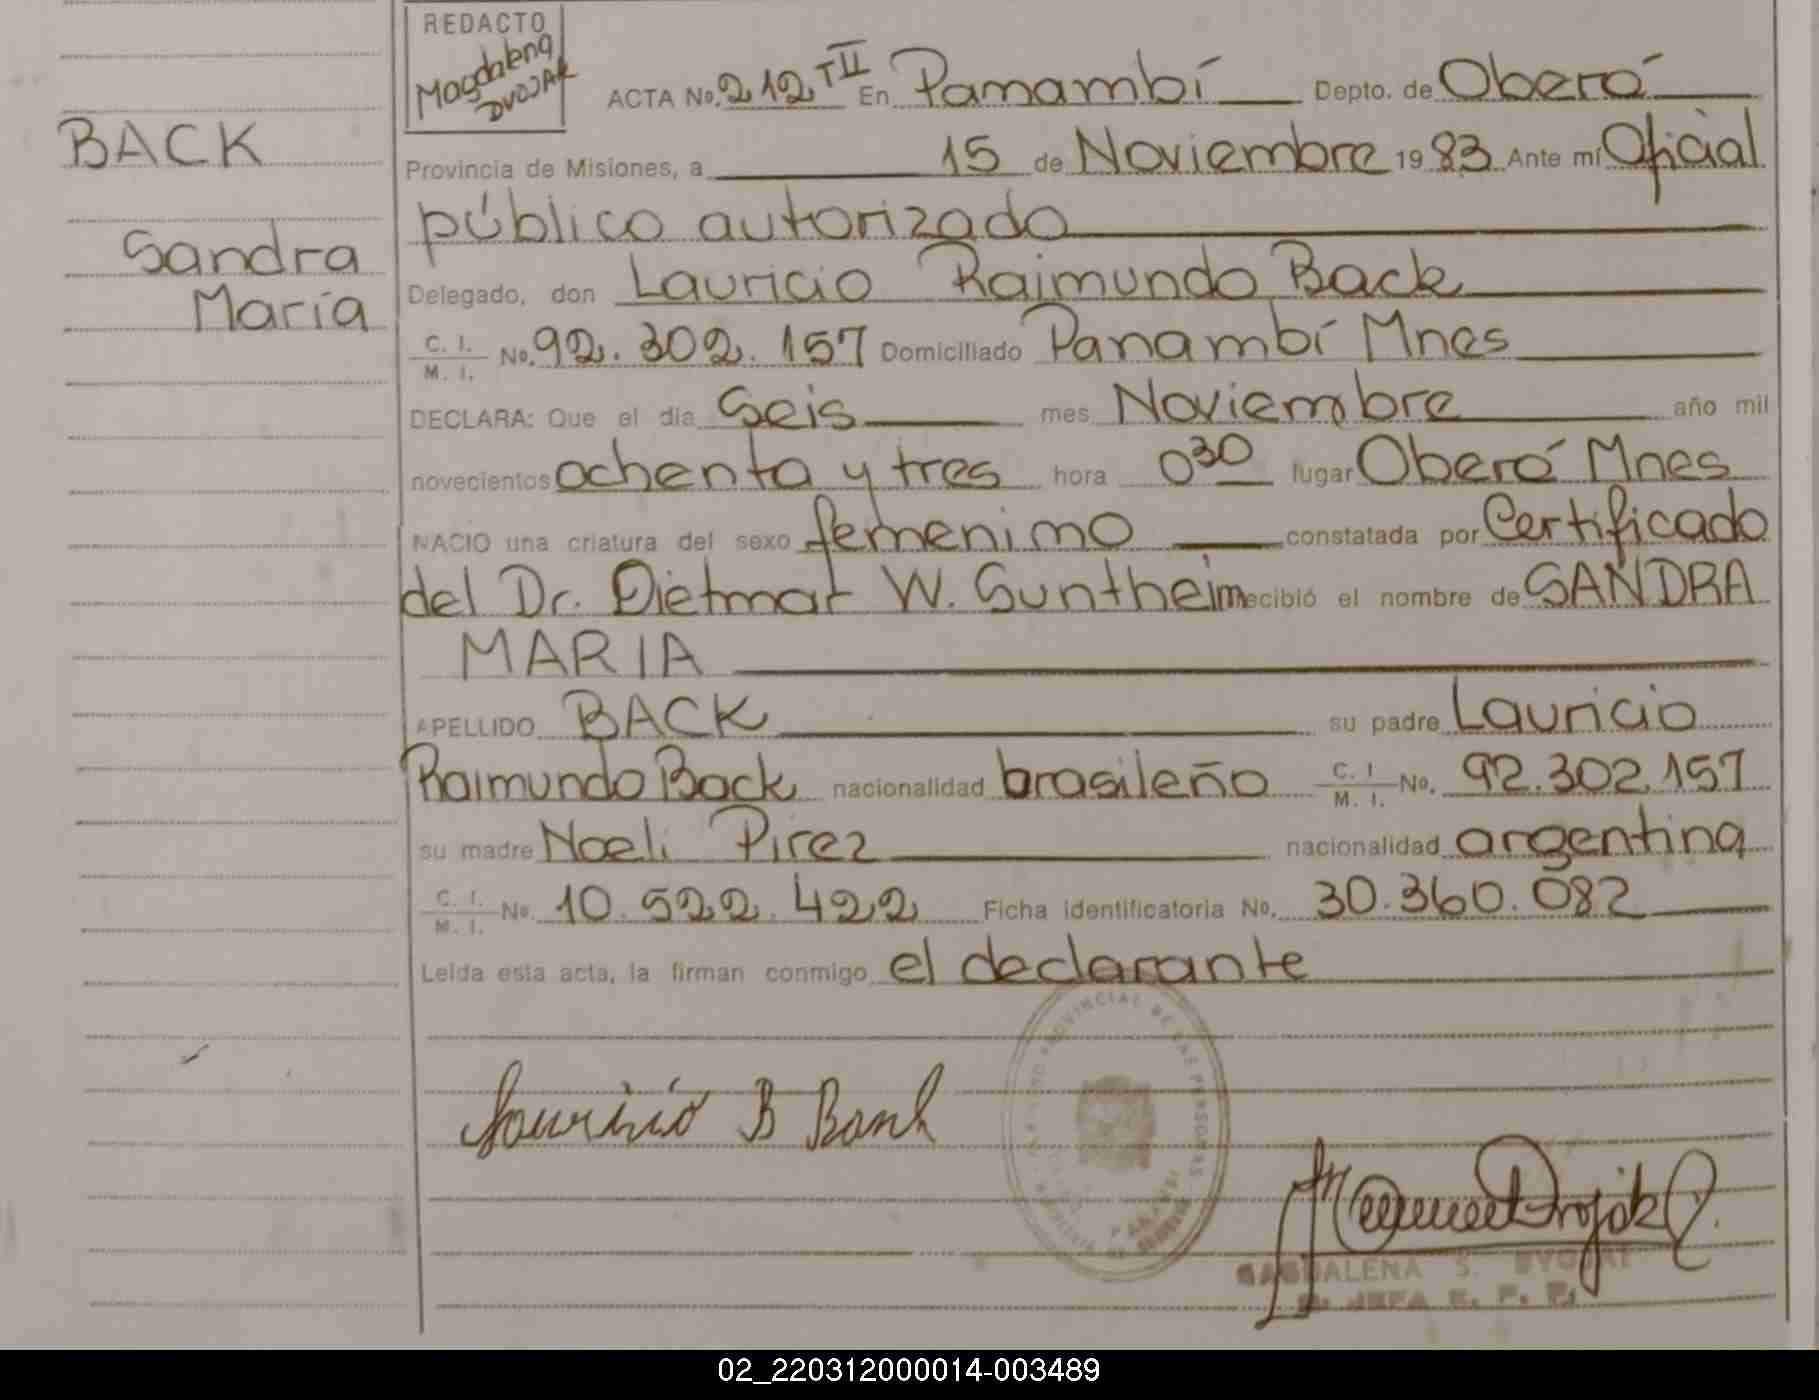 REDACTO
Magdalena
DVOJAK
ACTA No. 212 TII En Panambí Depto. de Oberá
BACK
Provincia de Misiones, a 15 de Noviembre 19 83 Ante mí Oficial
público autorizado
Sandra
Delegado, don Lauricio Raimundo Back
María
C. I.
M. I. No. 92.302.157 Domiciliado Panambí Mnes
DECLARA: Que el día Seis mes Noviembre año mil
novecientos ochenta y tres hora 0 30 lugar Oberá Mnes
NACIO una criatura del sexo femenino constatada por Certificado
del Dr. Dietmar W. Suntheim recibió el nombre de SANDRA
MARIA
APELLIDO BACK su padre Lauricio
Raimundo Back nacionalidad brasileño C. I.
M. I. No. 92.302.157
su madre Noeli Pirez nacionalidad argentina
C. I.
M. I. No. 10.522.422 Ficha identificatoria No. 30.360.082
Leída esta acta, la firman conmigo el declarante
PROVINCIAL DE LAS PERSONAS
MAGDALENA S. DVOJAK
JEFA
02_220312000014-003489